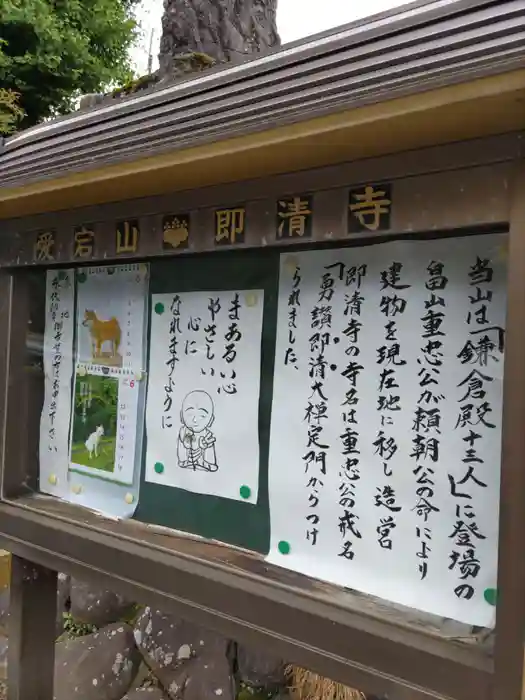 愛宕山 即清寺
当山は「鎌倉殿十三人」に登場の
畠山重忠公が頼朝公の命により
建物を現在地に移し造営
即清寺の寺名は重忠公の戒名
「勇讃即清大禅定門からつけ
られました、
まあるい心
やさしい
心に
なれますように
6